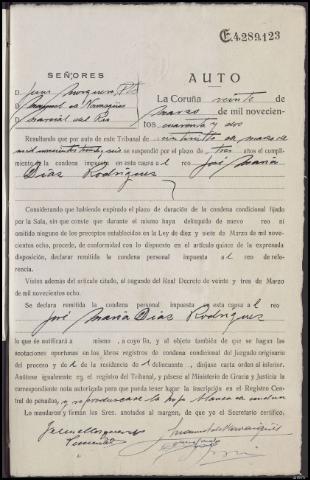 E.4.289.123
SEÑORES
AUTO
D.
La Coruña veinte de
D. Manuel
marzo de mil novecien-
D. Marcial del Río
tos cuarenta y dos
Resultando que por auto de este Tribunal de veintiocho de marzo de
mil novecientos treinta y seis se suspendió por el plazo de tres años el cumpli-
miento de la condena impuesta en esta causa al reo José María
Dias Rodrigues
Considerando que habiendo expirado el plazo de duración de la condena condicional fijado
por la Sala, sin que conste que durante el mismo haya delinquido de nuevo reo ni
omitido ninguno de los preceptos establecidos en la Ley de diez y siete de Marzo de mil nove-
cientos ocho, procede, de conformidad con lo dispuesto en el artículo quince de la expresada
disposición, declarar remitida la condena personal impuesta al reo de re-
ferencia.
Vistos además el artículo citado, el segundo del Real Decreto de veinte y tres de Marzo
de mil novecientos ocho.
Se declara remitida la condena personal impuesta en esta causa al reo
José María Dias Rodrigues
lo que se notificará a mismo, a cuyo fin, y al objeto también de que se hagan las
anotaciones oportunas en los libros registros de condena condicional del Juzgado originario
del proceso y del de la residencia del delincuente, diríjase carta orden al inferior.
Anótese igualmente en el registro del Tribunal, y pásese al Ministerio de Gracia y Justicia la
correspondiente nota autorizada para que pueda tener lugar la inscripción en el Registro Cen-
tral de penados, y reprodúzcase la hoja
Lo mandaron y firman los Sres. anotados al margen, de que yo el Secretario certifico.